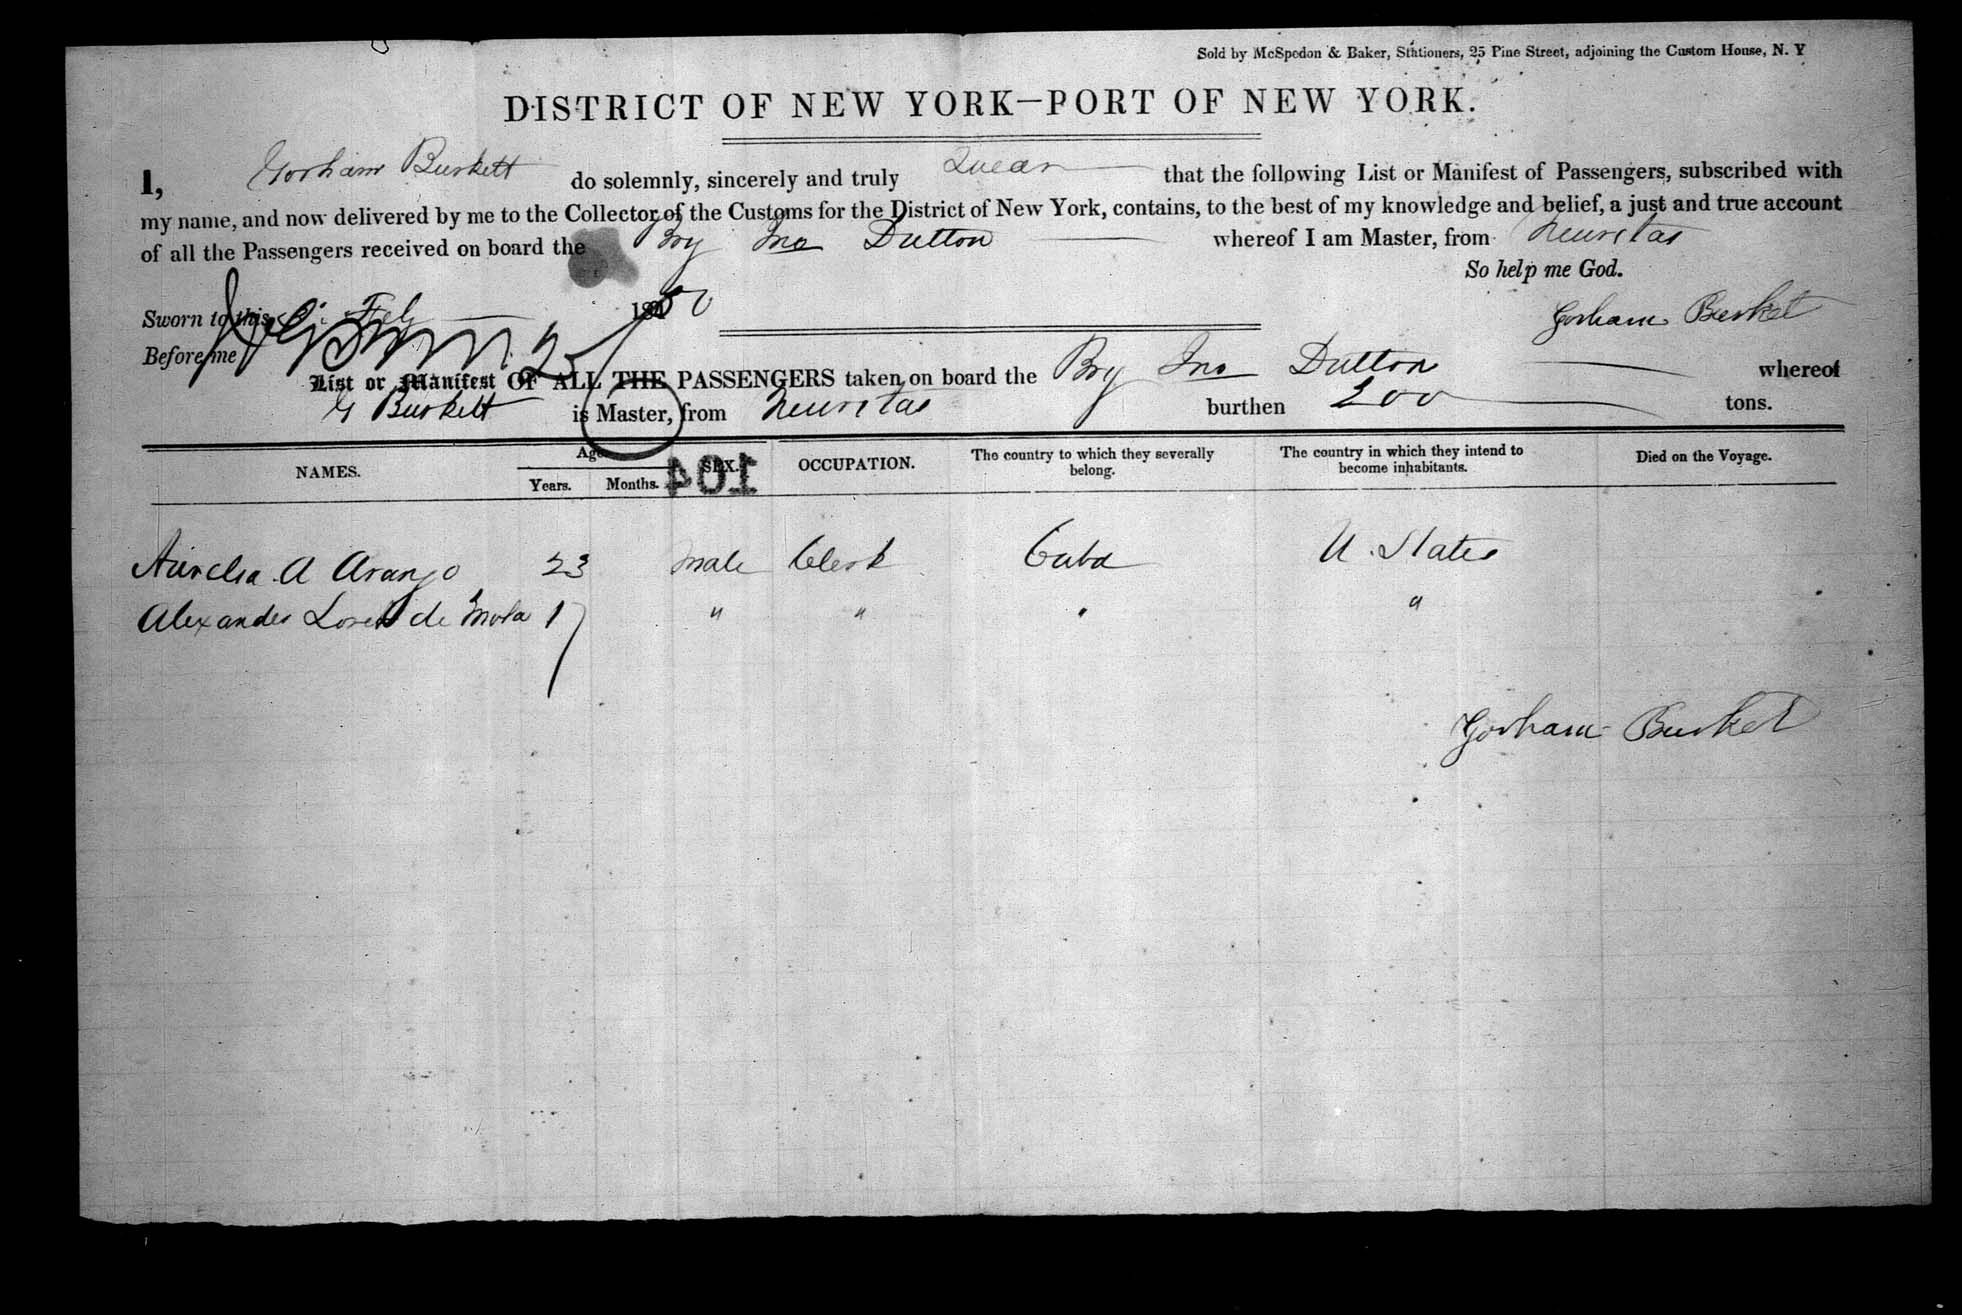 Sold by McSpedon & Baker, Stationers, 25 Pine Street, adjoining the Custom House, N. Y
DISTRICT OF NEW YORK—PORT OF NEW YORK.
I, Gorham Burkett do solemnly, sincerely and truly Swear that the following List or Manifest of Passengers, subscribed with
my name, and now delivered by me to the Collector of the Customs for the District of New York, contains, to the best of my knowledge and belief, a just and true account
of all the Passengers received on board the Brg Jno Dutton whereof I am Master, from Neuvitas
So help me God.
Sworn to this Feb 1850
Gorham Burket
Before me
List or Manifest OF ALL THE PASSENGERS taken on board the Brg Jno Dutton whereof
G Burkett is Master, from Neuvitas burthen 200 tons.
NAMES. Age Years. Months. SEX. OCCUPATION. The country to which they severally belong. The country in which they intend to become inhabitants. Died on the Voyage.
104
Aurelia A Arango 23 Male Clerk Cuba U. States
Alexander Loret de Mola 17 " " " "
Gorham Burket